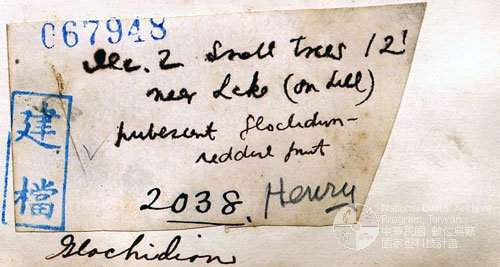 067948
Dec. 2 Small Trees 12'
near Lake (on hill)
pubescent Glochidion-
reddish fruit
2038. Henry
建檔
Glochidion
National Digital Archives
Program, Taiwan
中華民國 數位典藏
國家型科技計畫